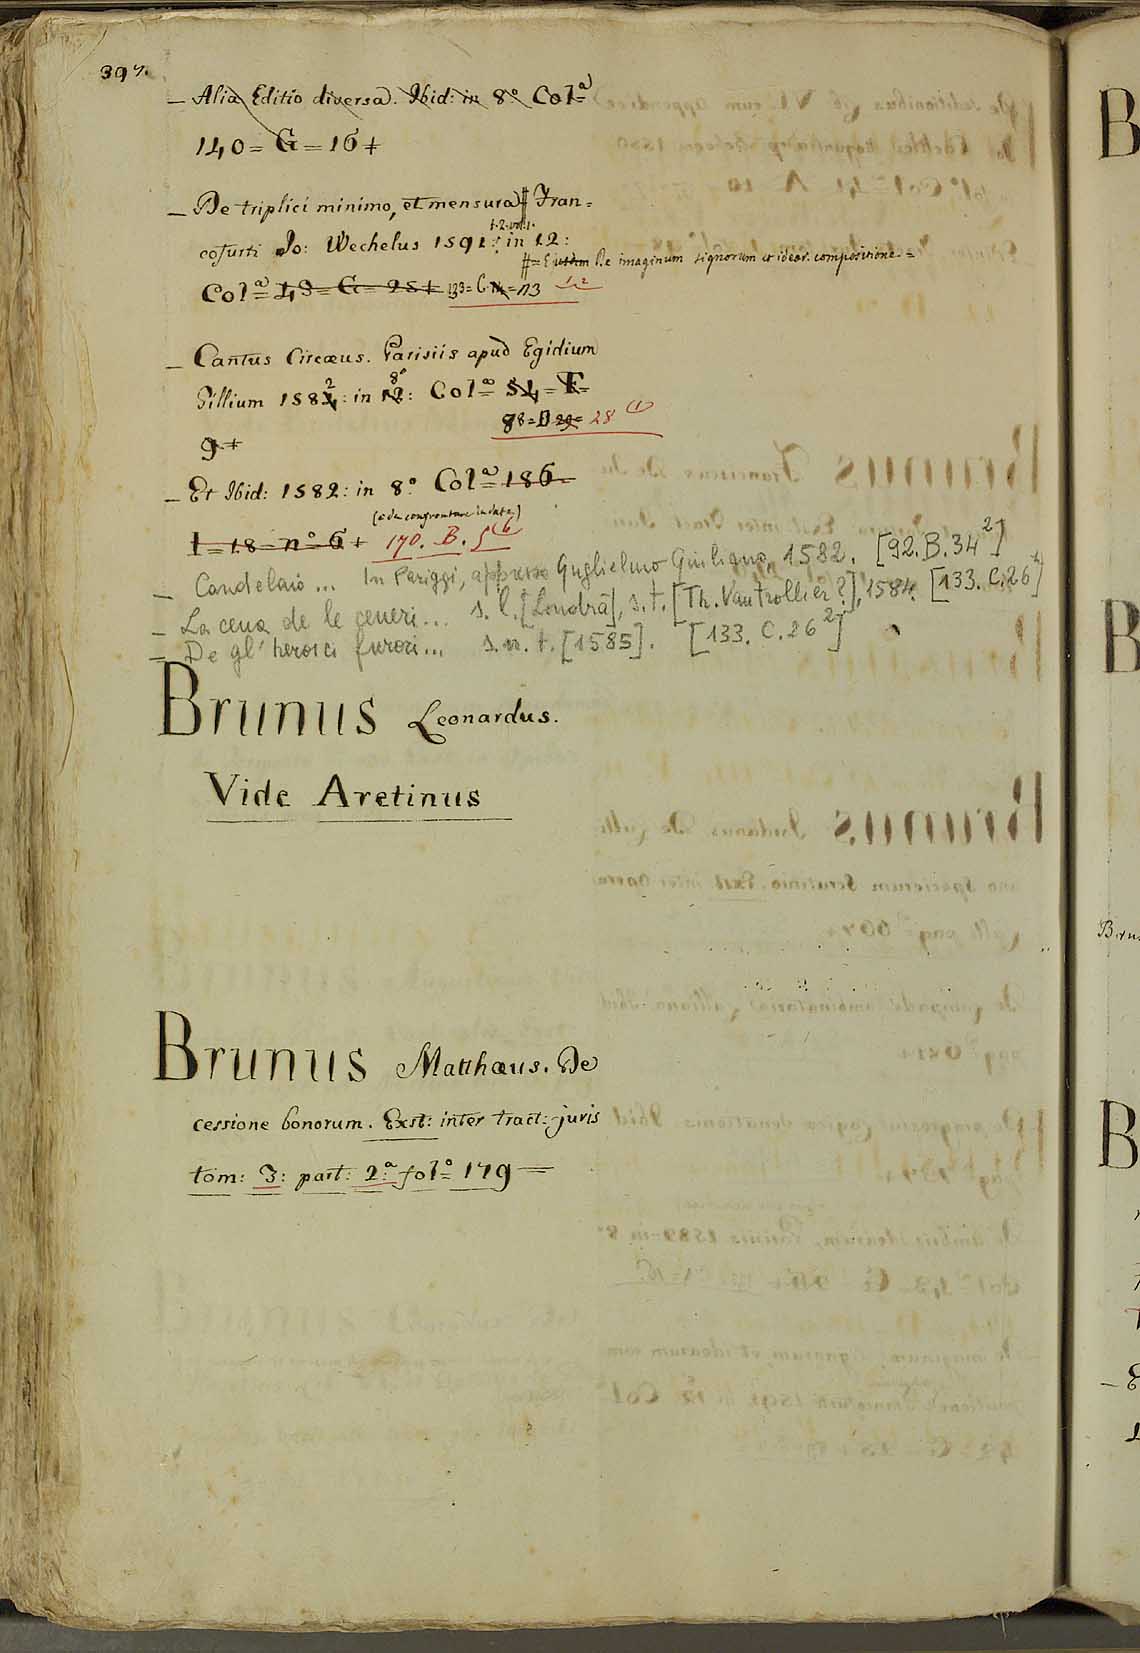 397.
_ Alia Editio diversa. Ibid: in 8.° Col.ª
140 = G = 16 +
_ De triplici minimo, et mensura # Fran=
cofurti Jo: Wechelus 1591: in 12:
t. 2. vol. 1.
#= Ejusdem De imaginum signorum et idear. compositione. =
Col.ª 43 = G = 25 + 133 = C = 13
_ Cantus Circæus. Parisiis apud Egidium
Gillium 1582: in 8° 12: Col.ª 54 = F =
88 = D 29 = 28 (1)
9 +
_ Et Ibid: 1582: in 8.° Col.ª 186 =
(è da confrontare la data)
I = 18 = n.° 6 + 170. B. 5 (6
_ Candelaio ... In Pariggi, appresso Guglielmo Giuliano, 1582. [92.B.34²]
_ La cena de le ceneri... s. l. [Londra], s. t. [Th. Vautrollier?], 1584. [133. C. 26¹]
_ De gl' heroici furori... s. n. t. [1585]. [133. C. 26²]
Brunus Leonardus.
Vide Aretinus
Brunus Matthæus. De
cessione bonorum. Exst: inter tract: juris
tom: 3: part: 2.ª fol.° 179 —